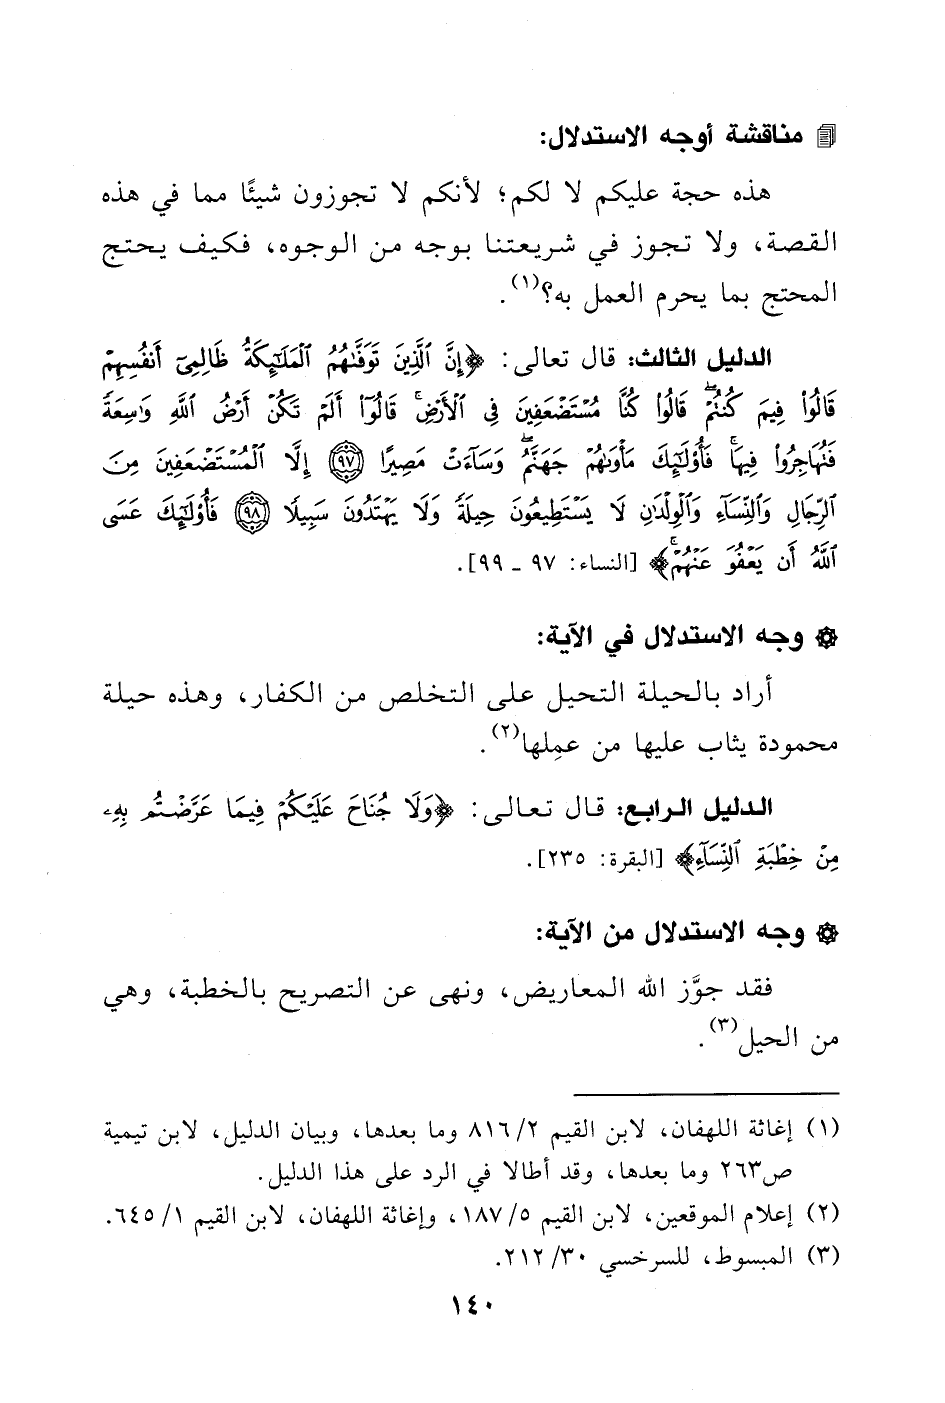 مناقشة أوجه الاستدلال:
هذه حجة عليكم لا لكم؛ لأنكم لا تجوزون شيئًا مما في هذه
القصة، ولا تجوز في شريعتنا بوجه من الوجوه، فكيف يحتج
المحتج بما يحرم العمل به؟(١).
الدليل الثالث: قال تعالى: ﴿إِنَّ ٱلَّذِينَ تَوَفَّىٰهُمُ ٱلْمَلَـٰٓئِكَةُ ظَالِمِىٓ أَنفُسِهِمْ
قَالُوا۟ فِيمَ كُنتُمْ ۖ قَالُوا۟ كُنَّا مُسْتَضْعَفِينَ فِى ٱلْأَرْضِ ۚ قَالُوٓا۟ أَلَمْ تَكُنْ أَرْضُ ٱللَّهِ وَٰسِعَةً
فَتُهَاجِرُوا۟ فِيهَا ۚ فَأُو۟لَـٰٓئِكَ مَأْوَىٰهُمْ جَهَنَّمُ ۖ وَسَآءَتْ مَصِيرًا ٩٧ إِلَّا ٱلْمُسْتَضْعَفِينَ مِنَ
ٱلرِّجَالِ وَٱلنِّسَآءِ وَٱلْوِلْدَٰنِ لَا يَسْتَطِيعُونَ حِيلَةً وَلَا يَهْتَدُونَ سَبِيلًا ٩٨ فَأُو۟لَـٰٓئِكَ عَسَى
ٱللَّهُ أَن يَعْفُوَ عَنْهُمْ ۚ﴾ [النساء: ٩٧ - ٩٩].
وجه الاستدلال في الآية:
أراد بالحيلة التحيل على التخلص من الكفار، وهذه حيلة
محمودة يثاب عليها من عمِلها(٢).
الدليل الرابع: قال تعالى: ﴿وَلَا جُنَاحَ عَلَيْكُمْ فِيمَا عَرَّضْتُم بِهِۦ
مِنْ خِطْبَةِ ٱلنِّسَآءِ﴾ [البقرة: ٢٣٥].
وجه الاستدلال من الآية:
فقد جوَّز الله المعاريض، ونهى عن التصريح بالخطبة، وهي
من الحيل(٣).
(١) إغاثة اللهفان، لابن القيم ٨١٦/٢ وما بعدها، وبيان الدليل، لابن تيمية
ص٢٦٣ وما بعدها، وقد أطالا في الرد على هذا الدليل.
(٢) إعلام الموقعين، لابن القيم ١٨٧/٥، وإغاثة اللهفان، لابن القيم ٦٤٥/١.
(٣) المبسوط، للسرخسي ٢١٢/٣٠.
١٤٠